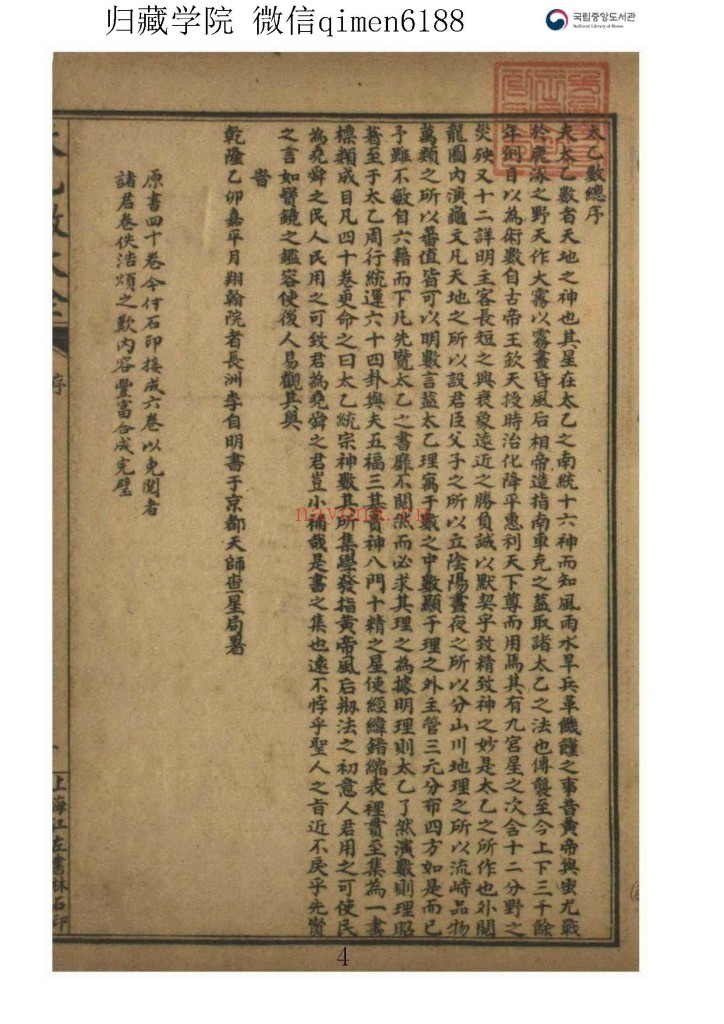 归藏学院 微信qimen6188
국립중앙도서관
National Library of Korea
太乙數總序
夫太乙數者天地之神也其星在太乙之南統十六神而知風雨水旱兵革饑饉之事昔黃帝與蚩尤戰
於鹿涿之野天作大霧以霧晝昏風后相帝造指南車克之蓋取諸太乙之法也傳襲至今上下三千餘
年例目以為術數自古帝王欽天授時治化降平惠利天下尊而用焉其有九宮星之次含十二分野之
災殃又十二詳明主客長短之興衰象遠近之勝負誠以默契乎致精致神之妙是太乙之所作也外闡
龍圖內演龜文凡天地之所以設君臣父子之所以立陰陽晝夜之所以分山川地理之所以流峙品物
萬類之所以蕃值皆可以明數言蓋太乙理寓于數之中數顯于理之外主管三元分布四方如是而已
予雖不敏自六籍而下凡先覽太乙之書靡不閱然而必求其理之為據明理則太乙了然演數則理昭
著至于太乙周行統運六十四卦與夫五福三其貴神八門十精之星使經緯錯綜表裡貫至集為一書
標類成目凡四十卷更命之曰太乙統宗神數其所集學發指黃帝風后拟法之初意人君用之可使民
為堯舜之民人民用之可致君為堯舜之君豈小補哉是書之集也遠不悖乎聖人之旨近不戾乎先賢
之言如醫鏡之鑑容使後人易觀其奧
旹
乾隆乙卯嘉平月翔翰院者長洲李自明書于京都天師查星局署
原書四十卷今付石印接成六卷以免閱者
諸君卷佚浩煩之歎內容豐富合成完璧
序
上海江左書林石印
nayona.cn
4